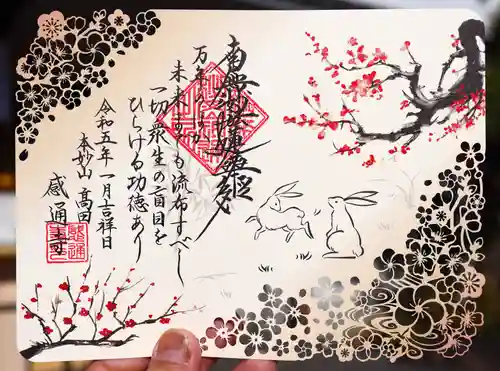 南無妙法蓮華経
万年のほか
未来までも流布すべし
一切衆生の盲目を
ひらける功徳あり
令和五年一月吉祥日
本妙山 高田
感通寺